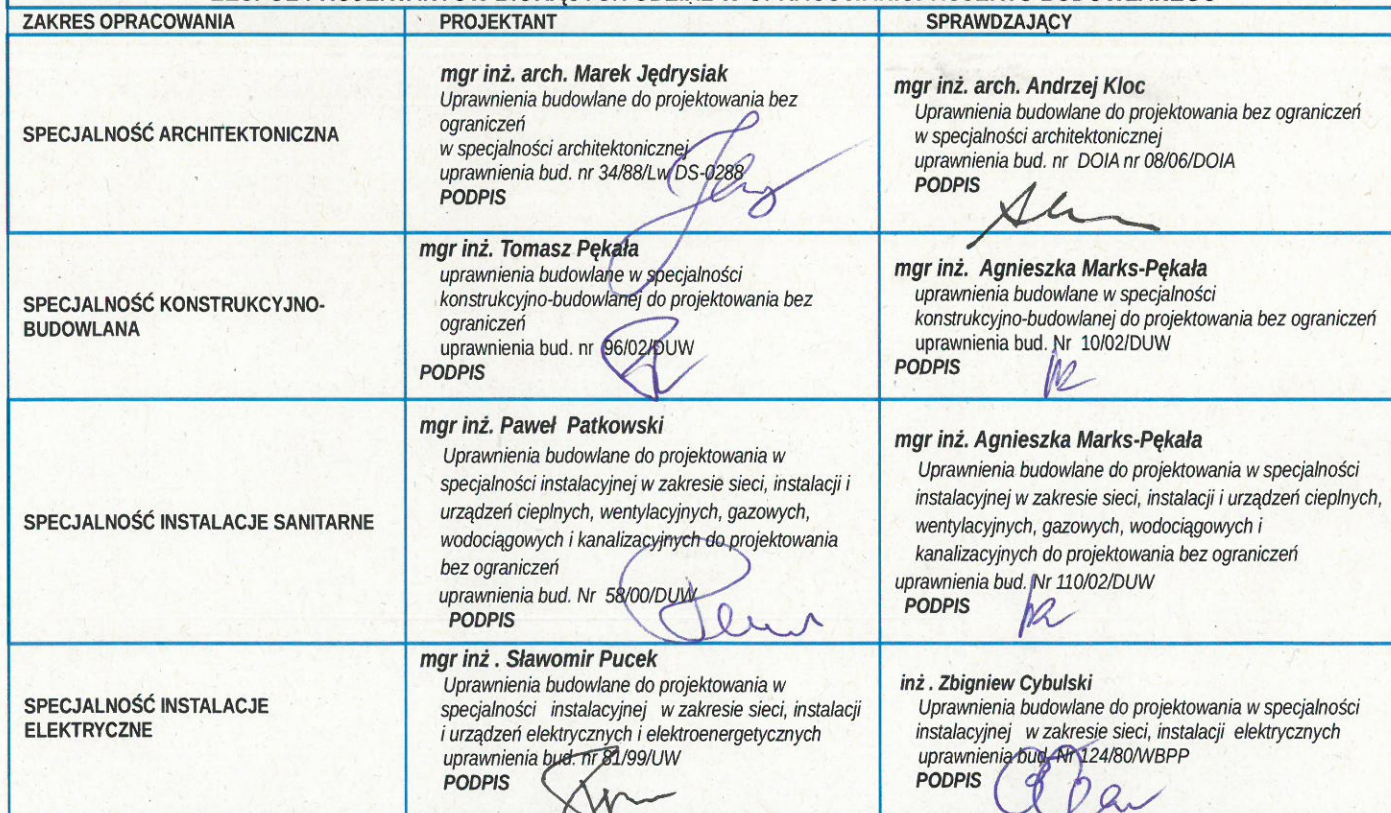 ZAKRES OPRACOWANIA
PROJEKTANT
SPRAWDZAJĄCY
SPECJALNOŚĆ ARCHITEKTONICZNA
mgr inż. arch. Marek Jędrysiak
Uprawnienia budowlane do projektowania bez
ograniczeń
w specjalności architektonicznej
uprawnienia bud. nr 34/88/Lw DS-0288
PODPIS
mgr inż. arch. Andrzej Kloc
Uprawnienia budowlane do projektowania bez ograniczeń
w specjalności architektonicznej
uprawnienia bud. nr DOIA nr 08/06/DOIA
PODPIS
SPECJALNOŚĆ KONSTRUKCYJNO-
BUDOWLANA
mgr inż. Tomasz Pękała
uprawnienia budowlane w specjalności
konstrukcyjno-budowlanej do projektowania bez
ograniczeń
uprawnienia bud. nr 96/02/DUW
PODPIS
mgr inż. Agnieszka Marks-Pękała
uprawnienia budowlane w specjalności
konstrukcyjno-budowlanej do projektowania bez ograniczeń
uprawnienia bud. Nr 10/02/DUW
PODPIS
SPECJALNOŚĆ INSTALACJE SANITARNE
mgr inż. Paweł Patkowski
Uprawnienia budowlane do projektowania w
specjalności instalacyjnej w zakresie sieci, instalacji i
urządzeń cieplnych, wentylacyjnych, gazowych,
wodociągowych i kanalizacyjnych do projektowania
bez ograniczeń
uprawnienia bud. Nr 58/00/DUW
PODPIS
mgr inż. Agnieszka Marks-Pękała
Uprawnienia budowlane do projektowania w specjalności
instalacyjnej w zakresie sieci, instalacji i urządzeń cieplnych,
wentylacyjnych, gazowych, wodociągowych i
kanalizacyjnych do projektowania bez ograniczeń
uprawnienia bud. Nr 110/02/DUW
PODPIS
SPECJALNOŚĆ INSTALACJE
ELEKTRYCZNE
mgr inż . Sławomir Pucek
Uprawnienia budowlane do projektowania w
specjalności instalacyjnej w zakresie sieci, instalacji
i urządzeń elektrycznych i elektroenergetycznych
uprawnienia bud. nr 81/99/UW
PODPIS
inż . Zbigniew Cybulski
Uprawnienia budowlane do projektowania w specjalności
instalacyjnej w zakresie sieci, instalacji elektrycznych
uprawnienia bud. Nr 124/80/WBPP
PODPIS